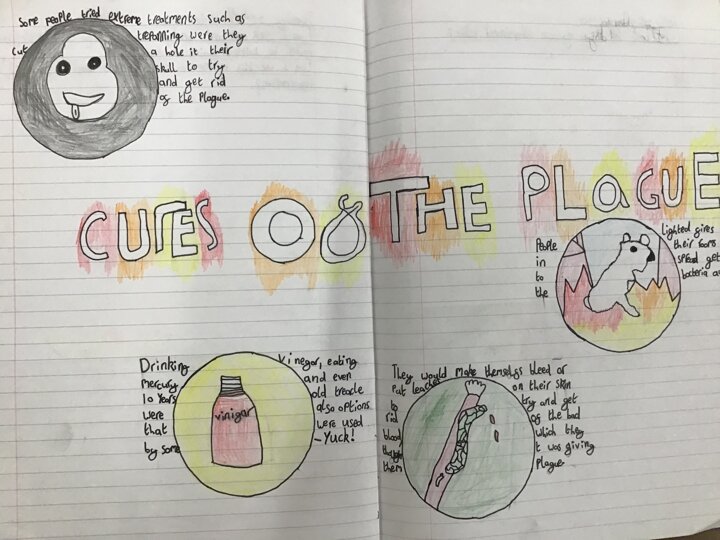 Some people tried extreme treatments such as
trepanning were they
cut a hole it their
skull to try
and get rid
of the Plague.
CURES OF THE PLaGUE
People Lighted fires
in their rooms
to spread get
the bacteria
Drinking Vinegar, eating
Mercury and even
10 Years old treacle
were also options
that were used
by some -Yuck!
vinigar
They would make themselfs bleed or
Put leaches on their skin
to try and get
rid of the bad
blood which they
thought it was giving
them Plague.